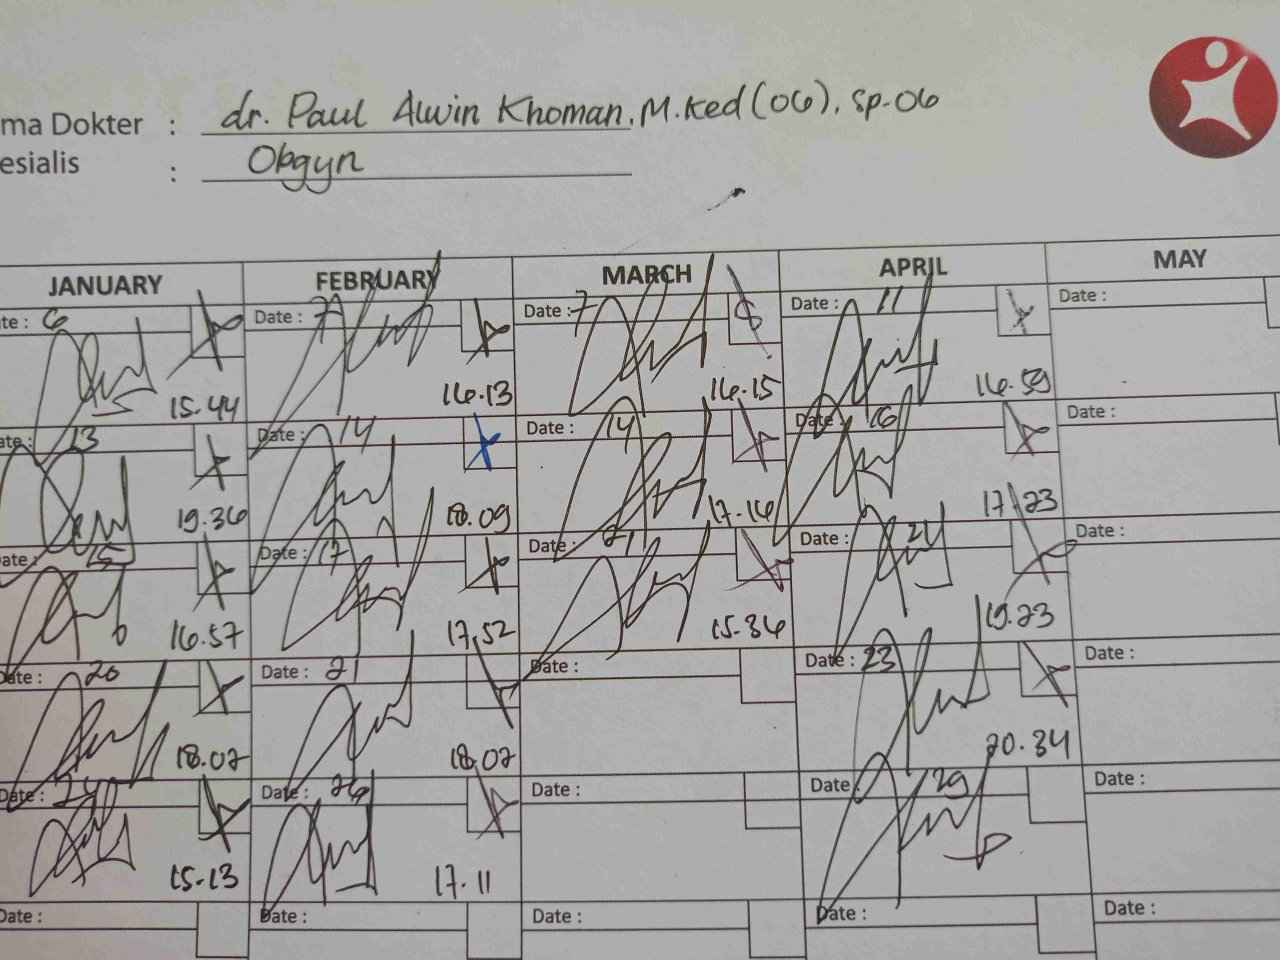 ma Dokter : dr. Paul Alwin Khoman, M.Ked (OG), Sp.OG
esialis : Obgyn
JANUARY FEBRUARY MARCH APRIL MAY
te: 6 Date : 7 Date : 7 Date : 11 Date :
15.44 16.13 16.15 16.59
ate: 13 Date : 14 Date : 14 Date : 16 Date :
19.36 18.09 17.16 17.23
Date : 15 Date : 17 Date : 21 Date : 21 Date :
16.57 17.52 15.36 19.23
Date : 20 Date : 21 Date : Date : 23 Date :
18.02 18.02 20.34
Date : Date : 26 Date : Date : 29 Date :
15.13 17.11
Date : Date : Date : Date : Date :